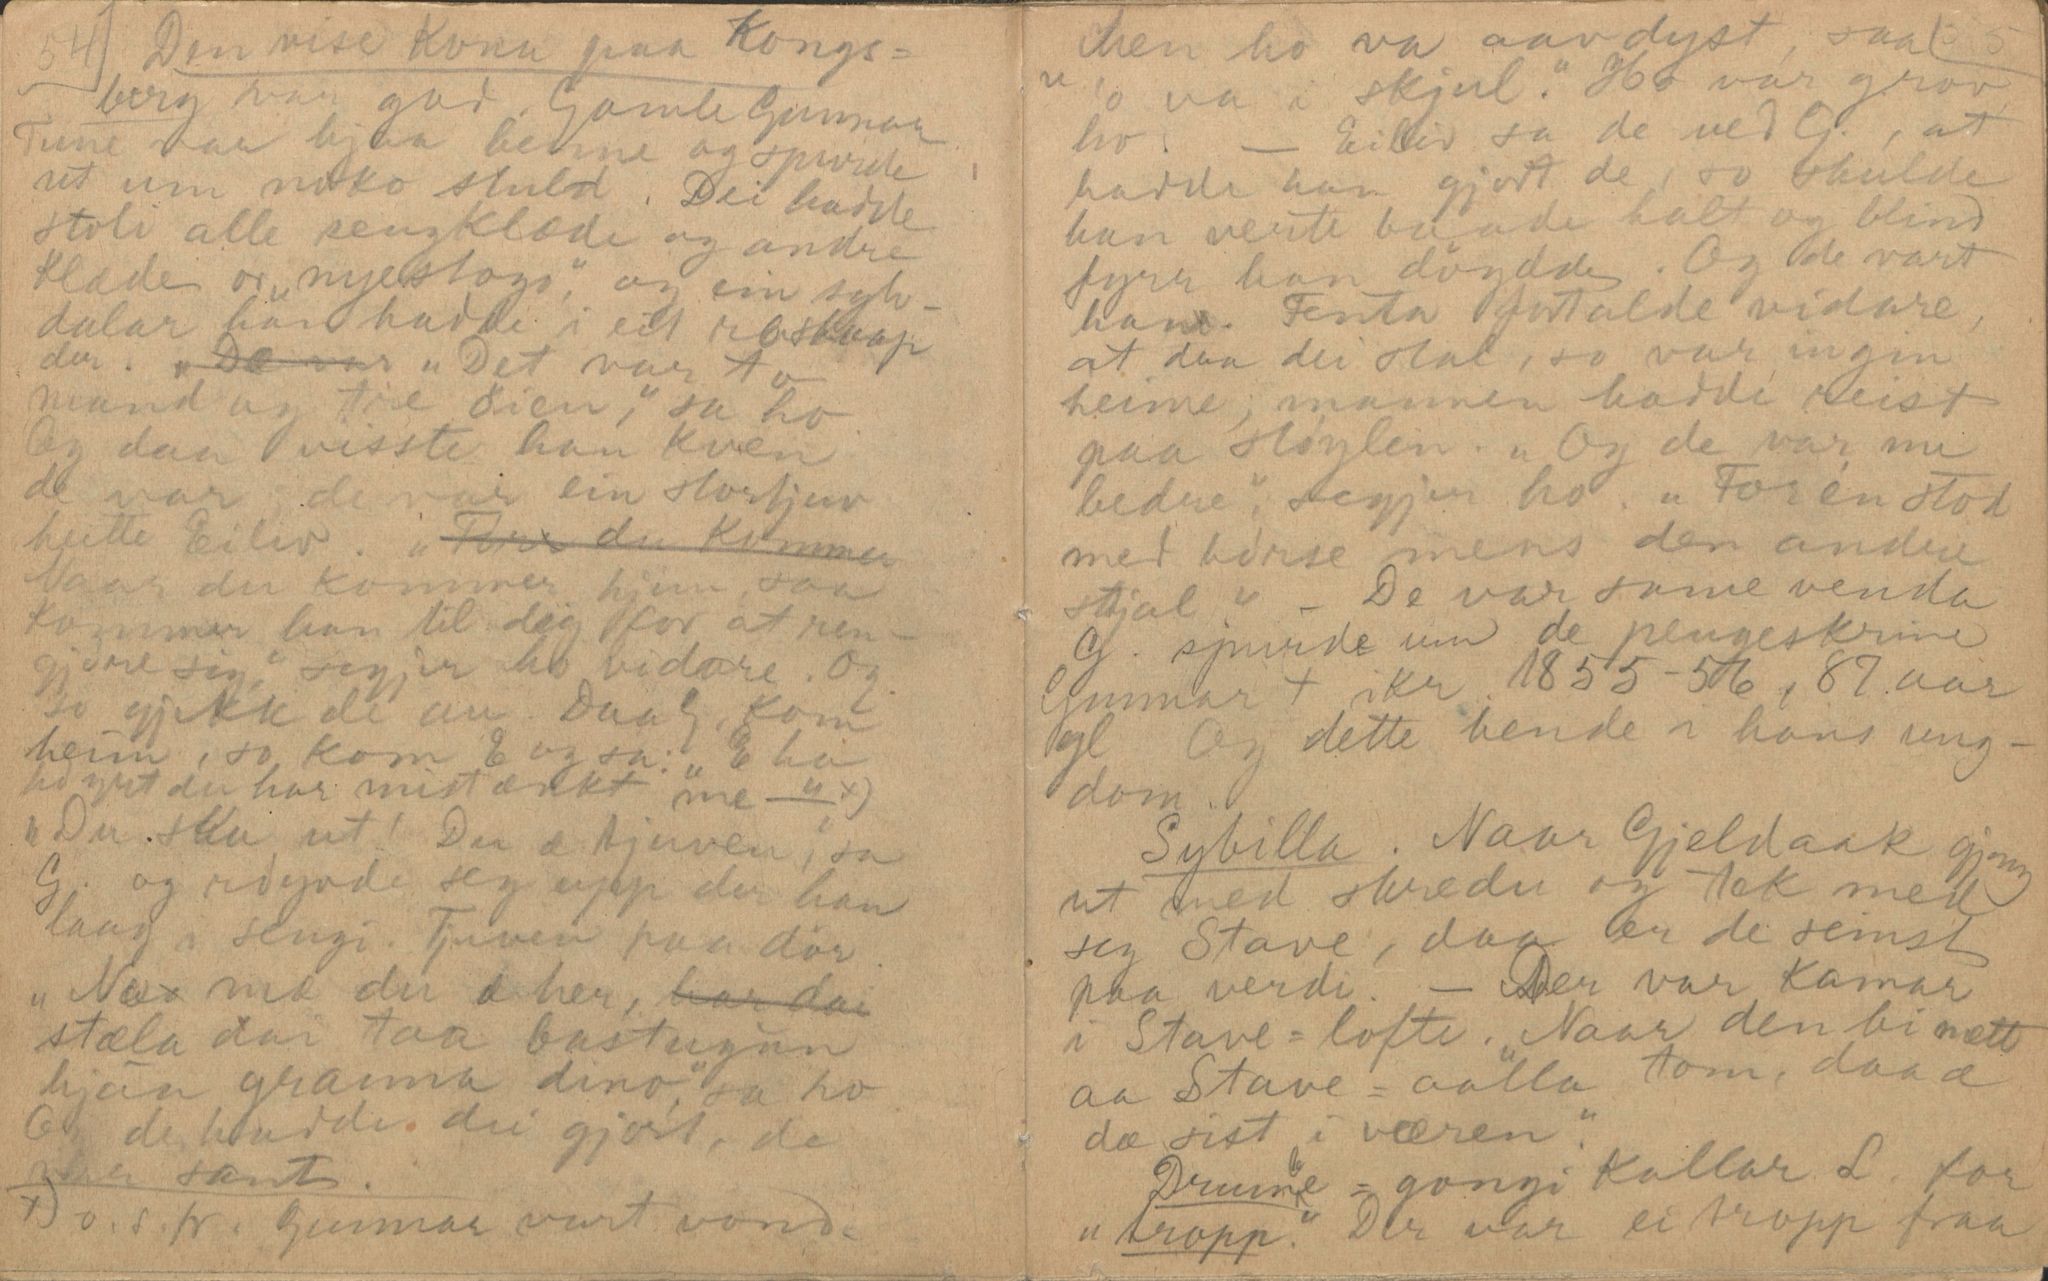 54)
Den vise Kona paa Kongs=
berg var god. Gamle Gunnar
Tune var hjaa henne og spurde
ut um noko stuld. Dei hadde
stoli alle sengklæde og andre
Klæde or "nyestogo", og ein sylv-
dalar han hadde i eit roskaap
der. "De var "Det var to
mand og tre øien," sa ho
Og daa visste han Kven
de var, de var ein stortjuv
heitte Eiliv. "Før du Kommer
Naar du kommer hjem, saa
kommer han til dig for at ren-
gjøre sig," segjer ho vidare. Og
so gjekk de au. Daa G. kom
heim, so kom E og sa: "E ha
høyrt du har mistænkt me — " x)
"Du ska ut! Du æ tjuven," sa
G. og røyvde seg upp der han
laag i sengi. Tjuven paa dør.
"Næ me du æ her, har dai
stæla dai taa bastugun
hjaa granna dino," sa ho
Og de hadde dei gjort, de
var sant.
x) o. s. fr. Gunnar vart vond.
55
Men ho va aavdyst, saa
"o va i skjul". Ho var grov,
ho. — Eiliv sa de ved G., at
hadde han gjort de, so skulde
han verte baade halt og blind
fyrr han døydde. Og de vart
han. Fenta fortalde vidare,
at daa dei stal, so var ingin
heime, mannen hadde reist
paa støylen. "Og de var me
bedre", segjer ho. "For én stod
med børse mens den andre
stjal" – De var same venda
G. spurde um de pengeskrine
Gunnar † ikr. 1855-56, 87 aar
gl Og dette hende i hans ung-
dom.
Sybilla. Naar Gjeldaak gjeng
ut med skredu og tek med
seg Stave, daa er de seinst
paa verdi. — Der var Kamar
i Stave=lofte. "Naar den bi nætt
aa Stave=aalla tom, daa æ
dæ sist i væren".
Drumbe=gongi Kallar S. for
"tropp". Der var ei tropp fraa